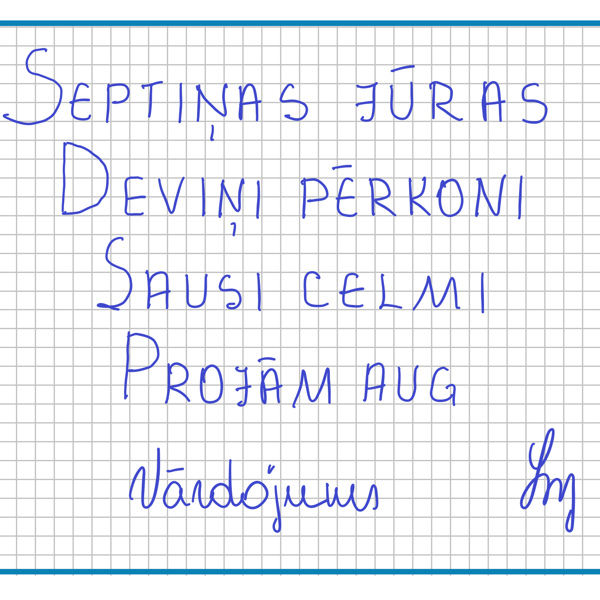 Septiņas jūras
Deviņi pērkoni
Sausi celmi
Projām aug
Vārdojums